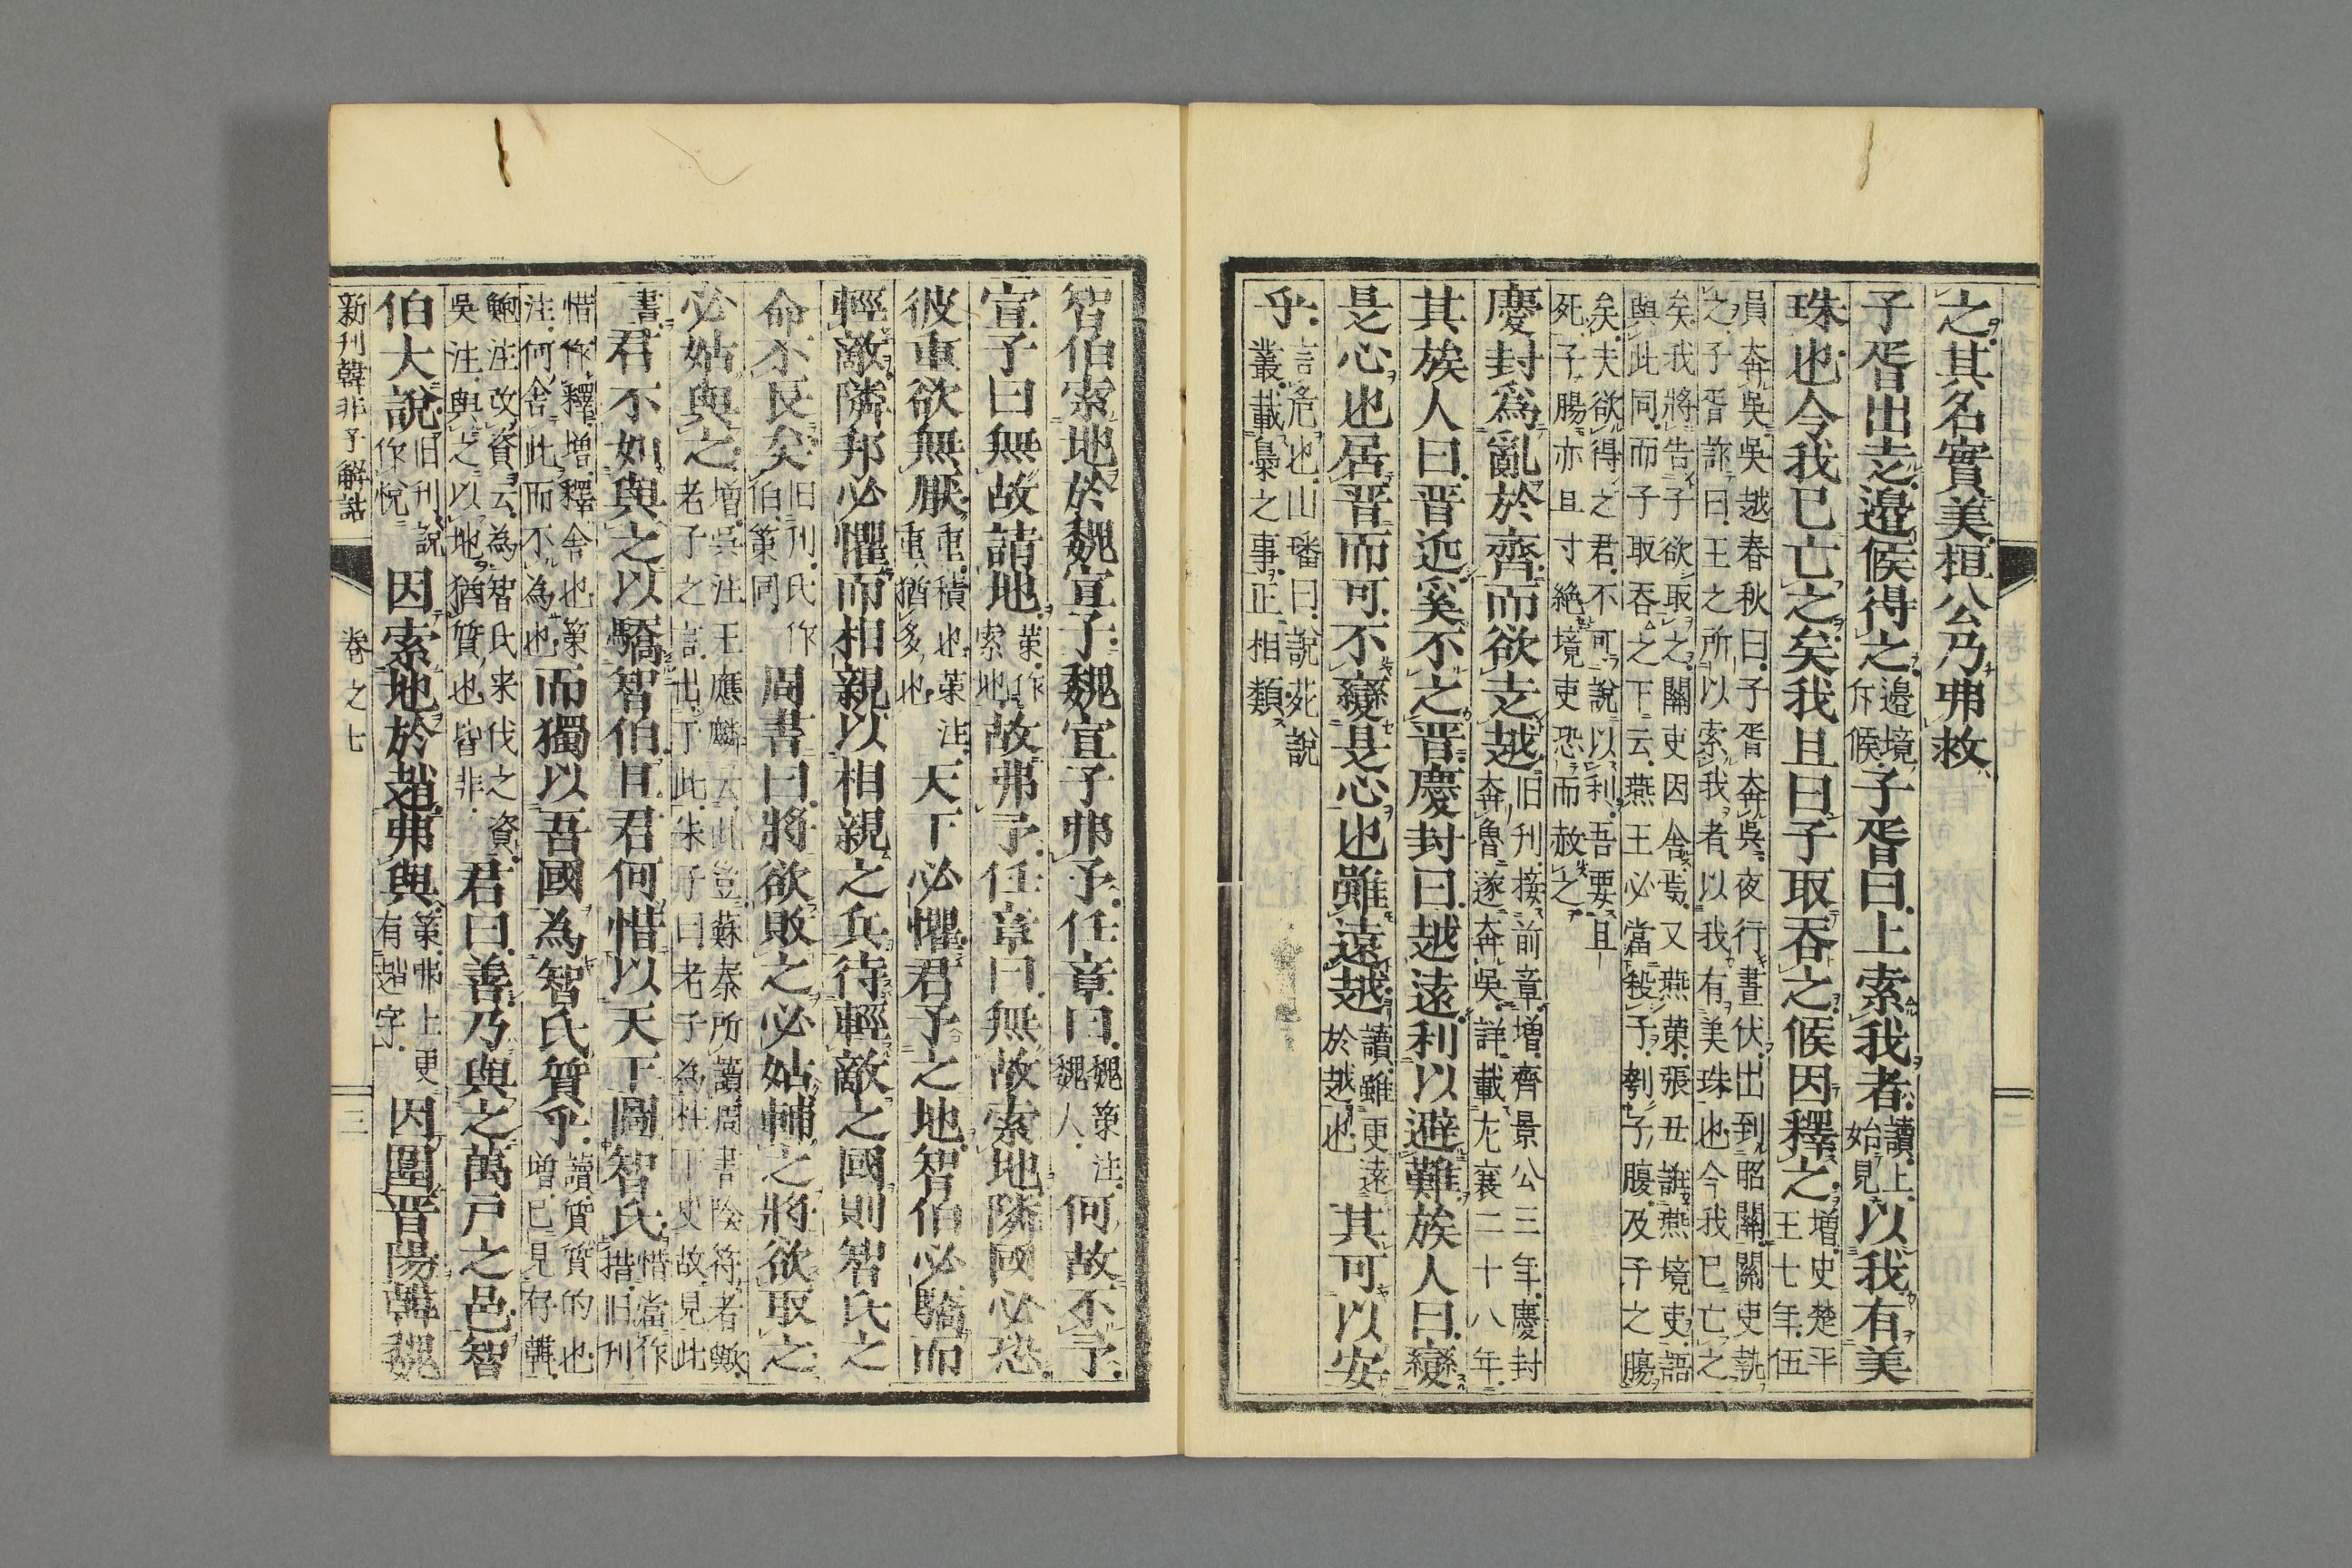 之其名實美桓公乃弗救
子胥出走邊候得之邊境斥候子胥曰上索我者讀上始見以我有美
珠也今我已亡之矣我且曰子取吞之候因釋之增史楚平王七年伍
員奔吳吳越春秋曰子胥奔吳夜行晝伏出到昭關關吏執
之子胥詐曰王之所以索我者以我有美珠也今我已亡之
矣我將告子欲取之關吏因舍焉又燕策張丑誑燕境吏語
與此同而子取吞之下云燕王必當殺子刳子腹及子之膓
矣夫欲得之君不可說以利吾要且
死子腸亦且寸絕境吏恐而赦之
慶封爲亂於齊而欲走越旧刊接前章增齊景公三年慶封奔魯遂奔吳詳載左襄二十八年
其族人曰晋近奚不之晋慶封曰越遠利以避難族人曰變
是心也居晋而可不變是心也雖遠越讀雖更遠於越也其可以安
乎言危也山璠曰說苑說叢載梟之事正相類
智伯索地於魏宣子魏宣子弗予任章曰魏策注魏人何故不予
宣子曰無故請地策作索地故弗予任章曰無故索地隣國必恐
彼重欲無厭重積也策注重猶多也天下必懼君予之地智伯必驕而
輕敵隣邦必懼而相親以相親之兵待輕敵之國則智氏之
命不長矣旧刊氏作伯策同周書曰將欲敗之必姑輔之將欲取之
必姑與之增吳注王應麟云此豈蘇秦所讀周書陰符者歟老子之言出于此朱子曰老子為柱下史故見此
書君不如與之以驕智伯且君何惜以天下圖智氏惜當作措旧刊
惜作釋增釋舍也策注何舍此而不為也而獨以吾國為智氏質乎讀質質的也增已見存韓
鮑注改資云為智氏来伐之資吳注與之以地猶質也皆非君曰善乃與之萬戸之邑智
伯大說旧刊說作悅因索地於趙弗與策弗上更有趙字因圍晋陽韓魏
新刊韓非子解詁　卷之七　三